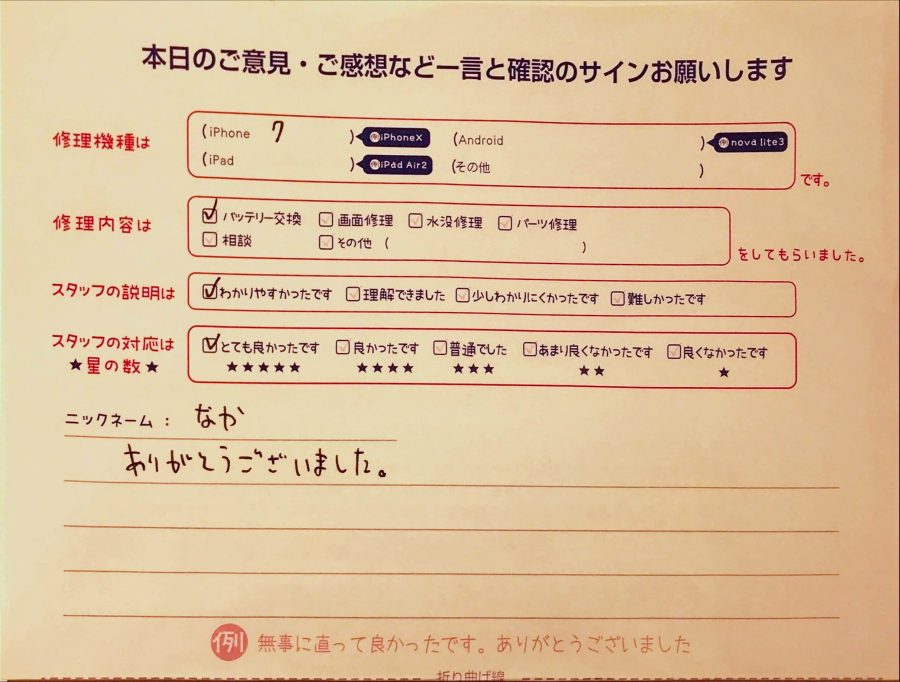 本日のご意見・ご感想など一言と確認のサインお願いします
修理機種は (iPhone 7 ) 例iPhoneX (Android ) 例nova lite3
(iPad ) 例iPad Air2 (その他 ) です。
修理内容は バッテリー交換 画面修理 水没修理 パーツ修理
相談 その他 ( ) をしてもらいました。
スタッフの説明は わかりやすかったです 理解できました 少しわかりにくかったです 難しかったです
スタッフの対応は とても良かったです 良かったです 普通でした あまり良くなかったです 良くなかったです
★星の数★ ★★★★★ ★★★★ ★★★ ★★ ★
ニックネーム： なか
ありがとうございました。
例 無事に直って良かったです。ありがとうございました
折り曲げ線